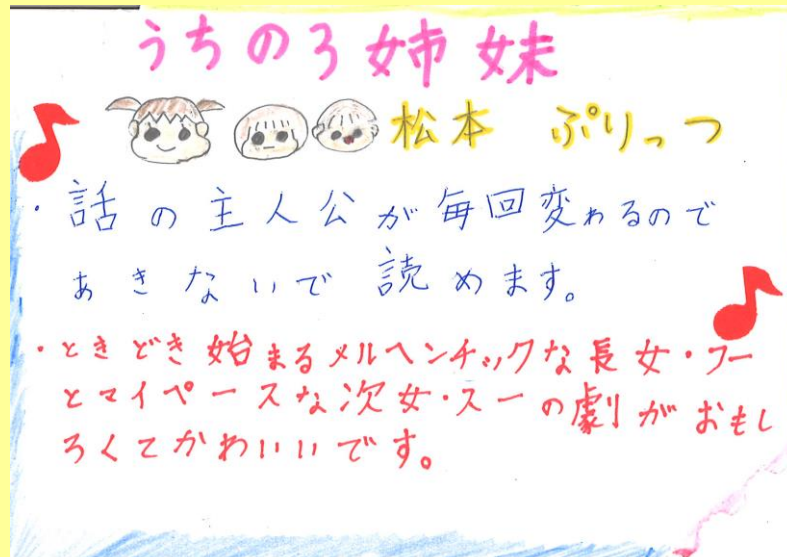 うちの3姉妹
松本 ぷりっつ
・話の主人公が毎回変わるので
あきないで読めます。
・ときどき始まるメルヘンチックな長女・フー
とマイペースな次女・スーの劇がおもし
ろくてかわいいです。